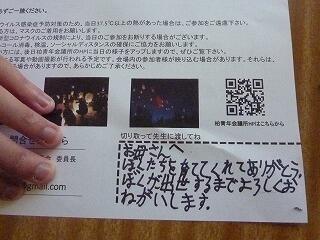 ウイルス感染症予防対策のため、当日37.5℃以上の熱があった場合は、ご参加をご遠慮下さい。
方は、マスクの着用をお願いします。
型コロナウイルスの規制により、当日のご参加をお断りする場合がございます。
コール消毒、検温、ソーシャルディスタンスの確保にご協力をお願いします。
方には、後日柏青年会議所HPに当日の様子をアップしますので、ぜひご覧下さい。
る写真や動画撮影が行われる予定です。会場内の参加者様が映り込む場合があります。それらは、
る場合がありますが、あらかじめご了承ください。
柏青年会議所HPはこちらから
切り取って先生に渡してね
委員長
gmail.com
お母さんへ
ぼくたちを育ててくれてありがとう。
ぼくが出世するまでよろしくお
ねがいします。